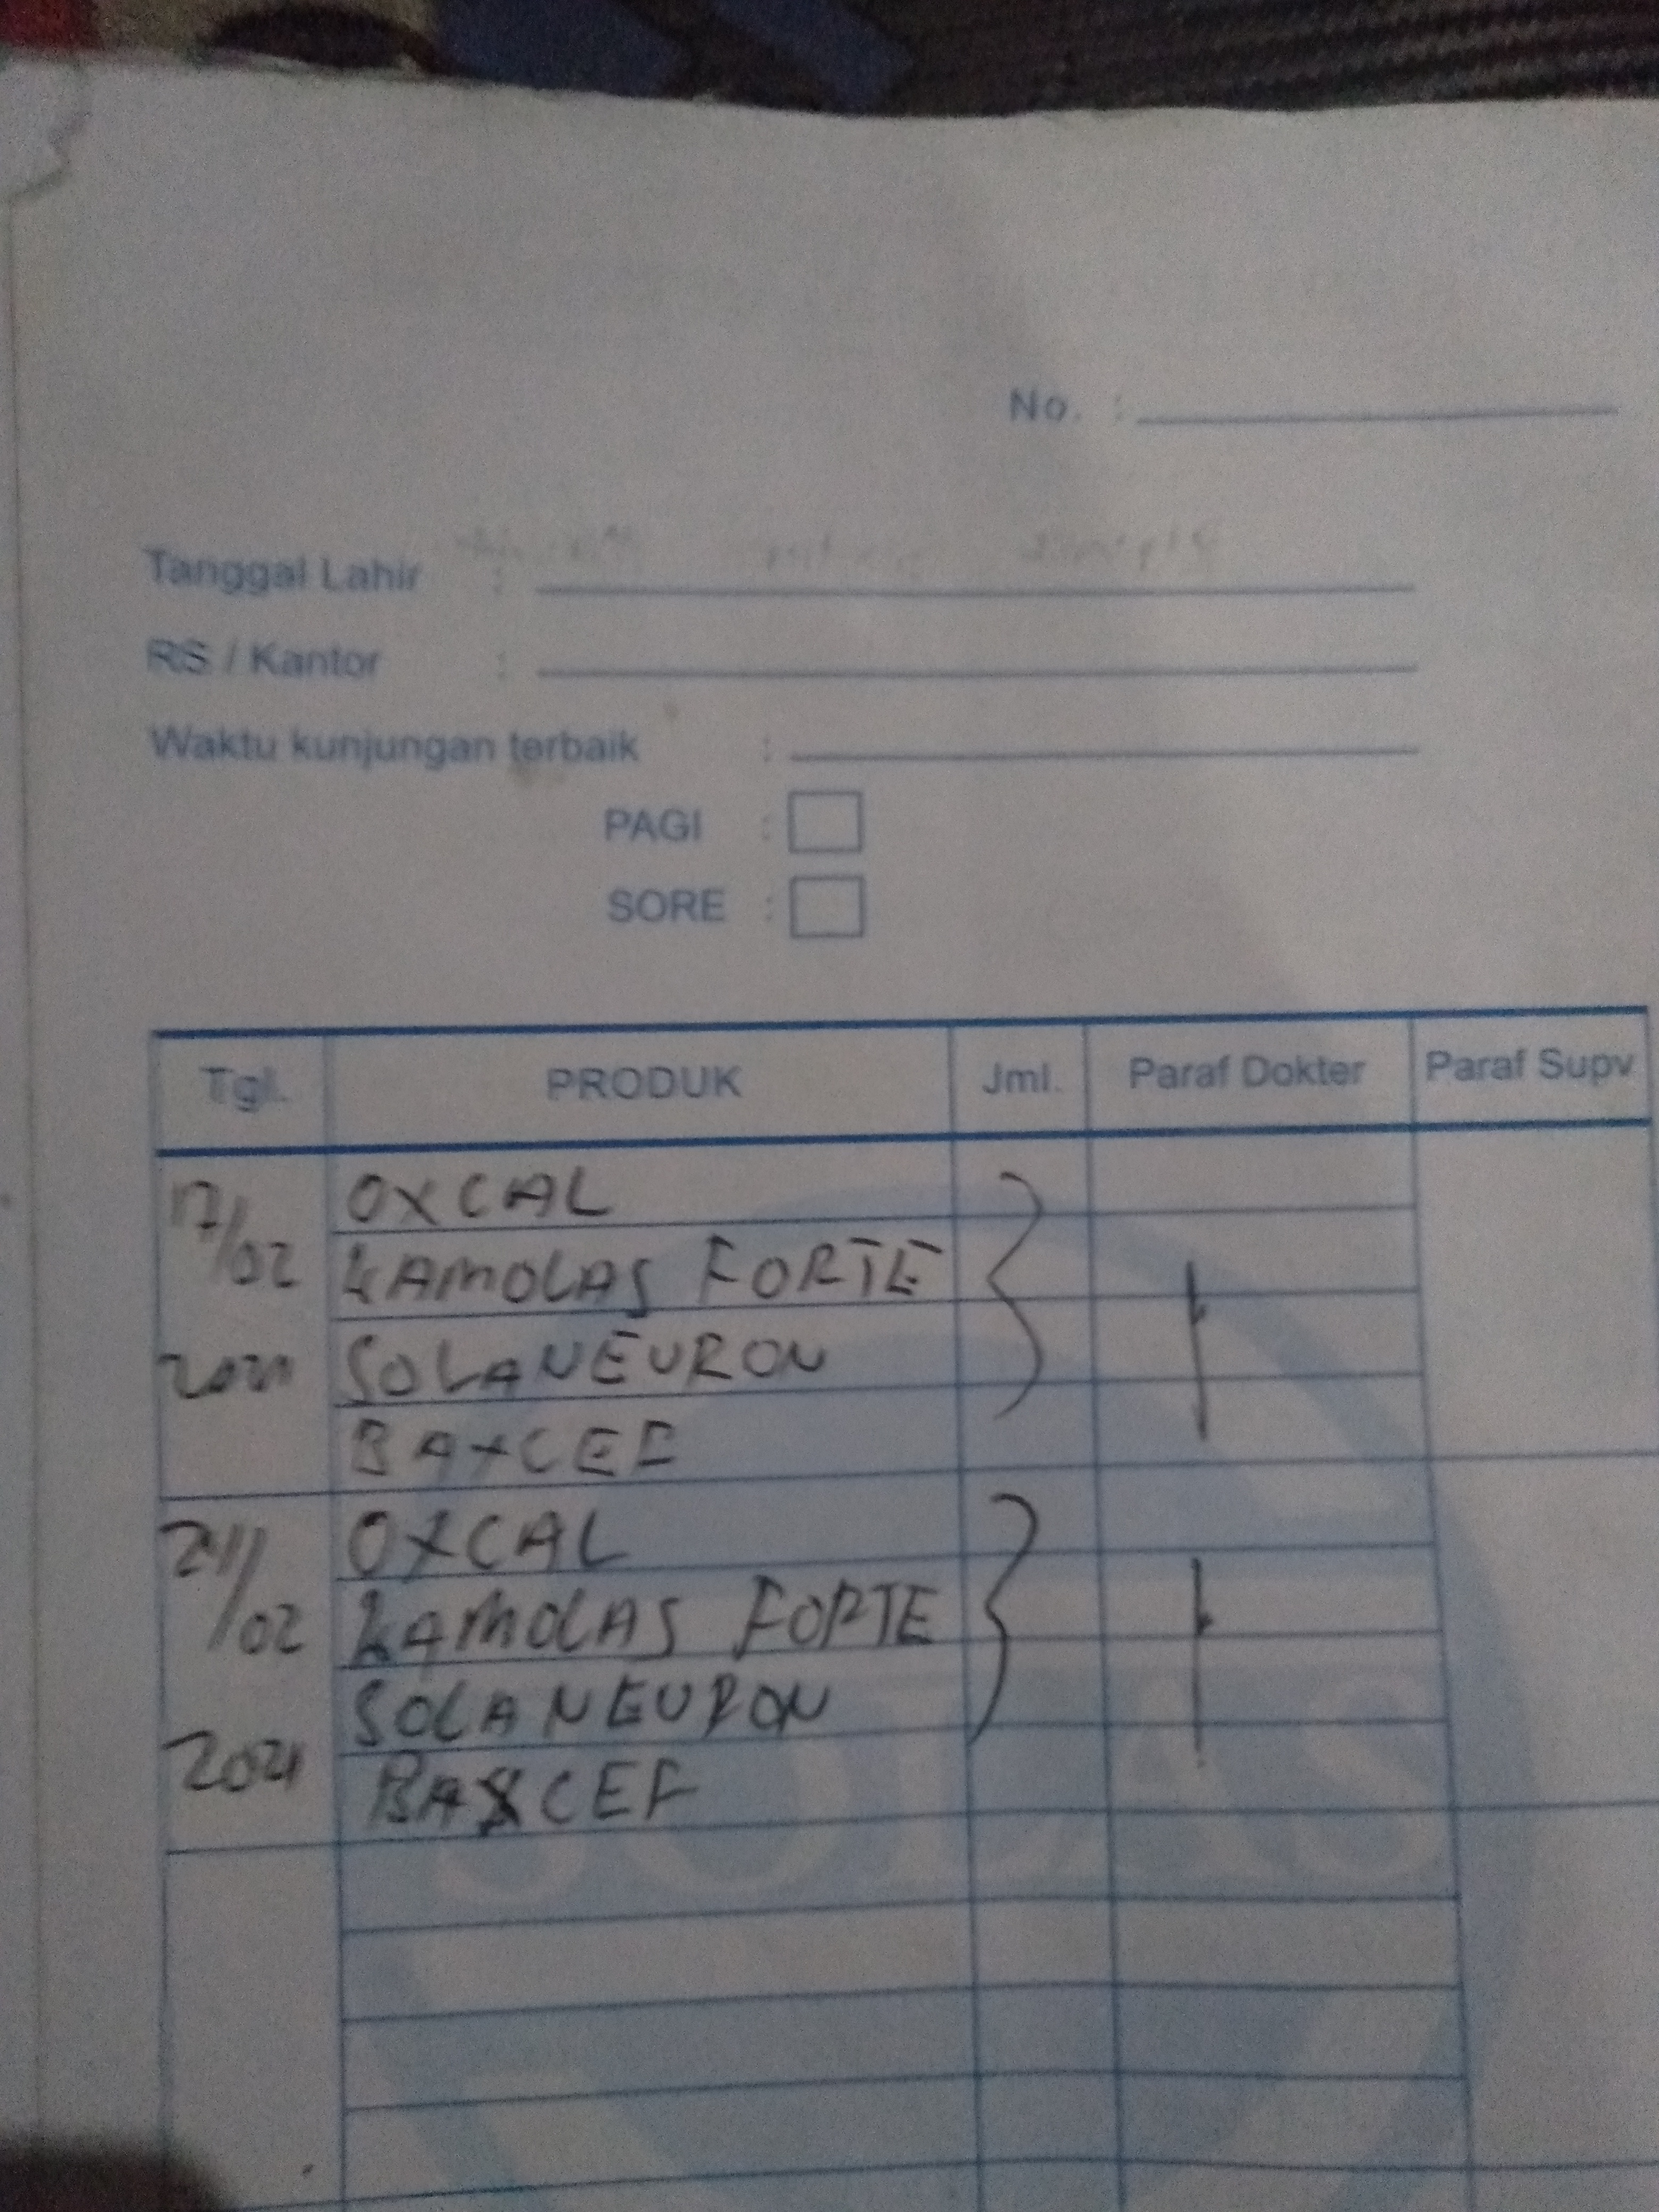 No. :
Tanggal Lahir :
RS / Kantor :
Waktu kunjungan terbaik :
PAGI :
SORE :
Tgl. PRODUK Jml. Paraf Dokter Paraf Supv
17/02 2021 OXCAL
LAMOLAS FORTE
SOLANEURON
BAXCEF
24/02 2021 OXCAL
LAMOLAS FORTE
SOLANEURON
BAXCEF
SOLAS